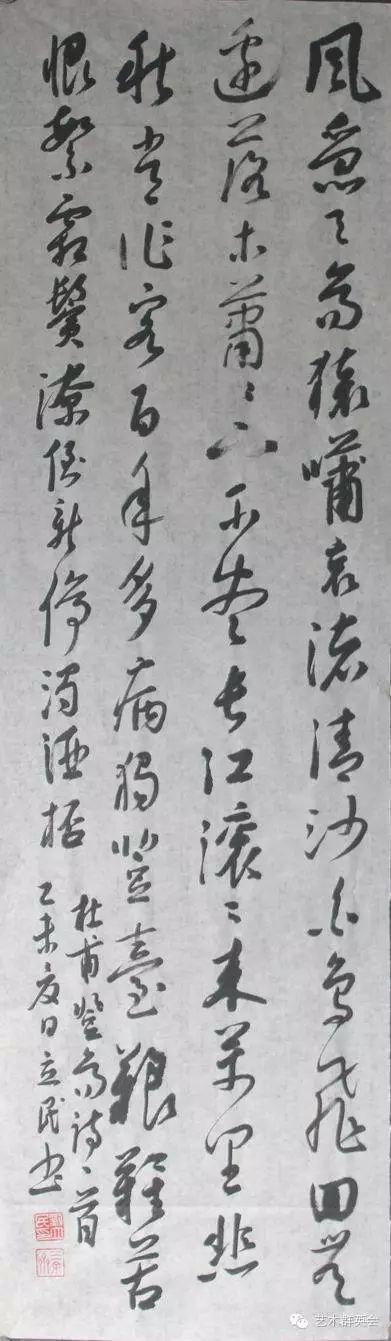 風急天高猿嘯哀渚清沙白鳥飛回無
邊落木蕭々下不盡長江滾々來萬里悲
秋常作客百年多病獨登臺艱難苦
恨繁霜鬢潦倒新停濁酒杯
杜甫登高詩一首
乙未夏日立民书
艺术群英会